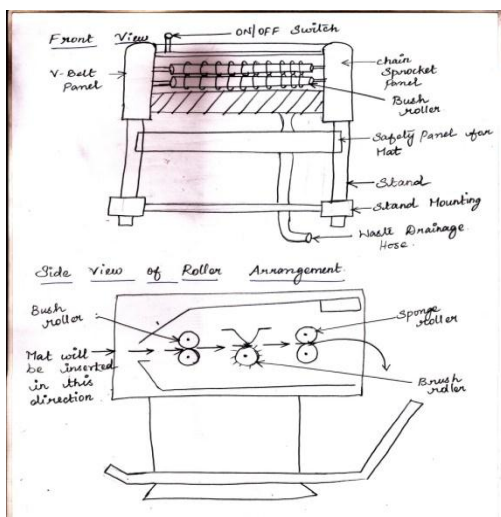 Front View
ON/OFF Switch
V-Belt
Panel
chain
Sprocket
Panel
Bush
roller
Safety Panel for
Mat
Stand
Stand Mounting
Waste Drainage
Hose.
Side View of Roller Arrangement
Bush
roller
Sponge
roller
Mat will
be inserted
in this
direction
Brush
roller